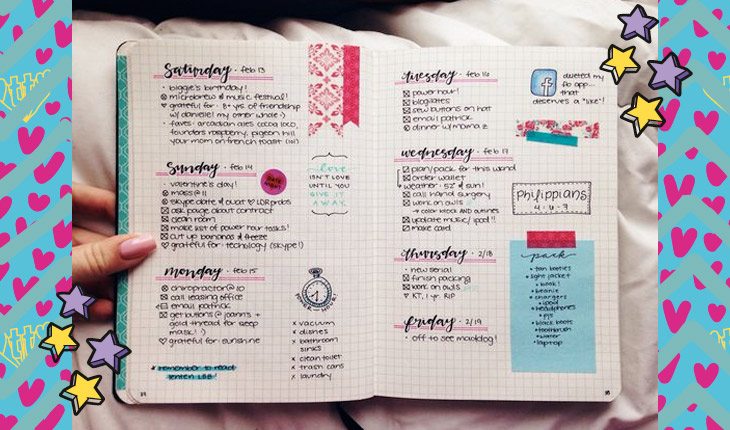 Saturday · feb 13
· biggie's birthday!
microbrew & music festival!
♡ grateful for: 8+ yrs of friendship
w/ danielle! my other whale :)
· faves: arcadian ales cocoa loco,
founders raspberry, pigeon hill
your mom on french toast (lol)
Sunday · feb 14
· valentine's day!
mass @ 11
skype date
clean room
make list of power hour tasks!
cut up bananas & freeze
♡ grateful for: technology (skype!)
DATE NIGHT
love
ISN'T LOVE
UNTIL YOU
GIVE IT
AWAY.
monday · feb 15
chiropractor @ 10
call leasing office
email patrick
get buttons @ joann's +
gold thread for sleep
mask! :)
♡ grateful for: sunshine
remember to read
POWER HOUR!
x vacuum
x dishes
x bathroom
sinks
x clean toilet
x trash cans
x laundry
tuesday · feb 16
power hour!
blogilates
sew buttons on hat
email patrick
dinner w/ mama z
deleted my
fb app...
that
deserves a "like"!
wednesday · feb 17
plan/pack for this wknd
order wallet
weather: 52° & sun!
call hand surgery
work on owls
→ color block AND outlines
update music/ipod!!
make card
Philippians
4:6-7
thursday · 2/18
· new serial
finish packing
work on owls
♡ KT, 1 yr. RIP
friday · 2/19
· off to see maddog!
pack
· tan booties
· light jacket
· book!
· beanie
· chargers
· ipod
· headphones
· pjs
· black boots
· toothbrush
· water
· laptop